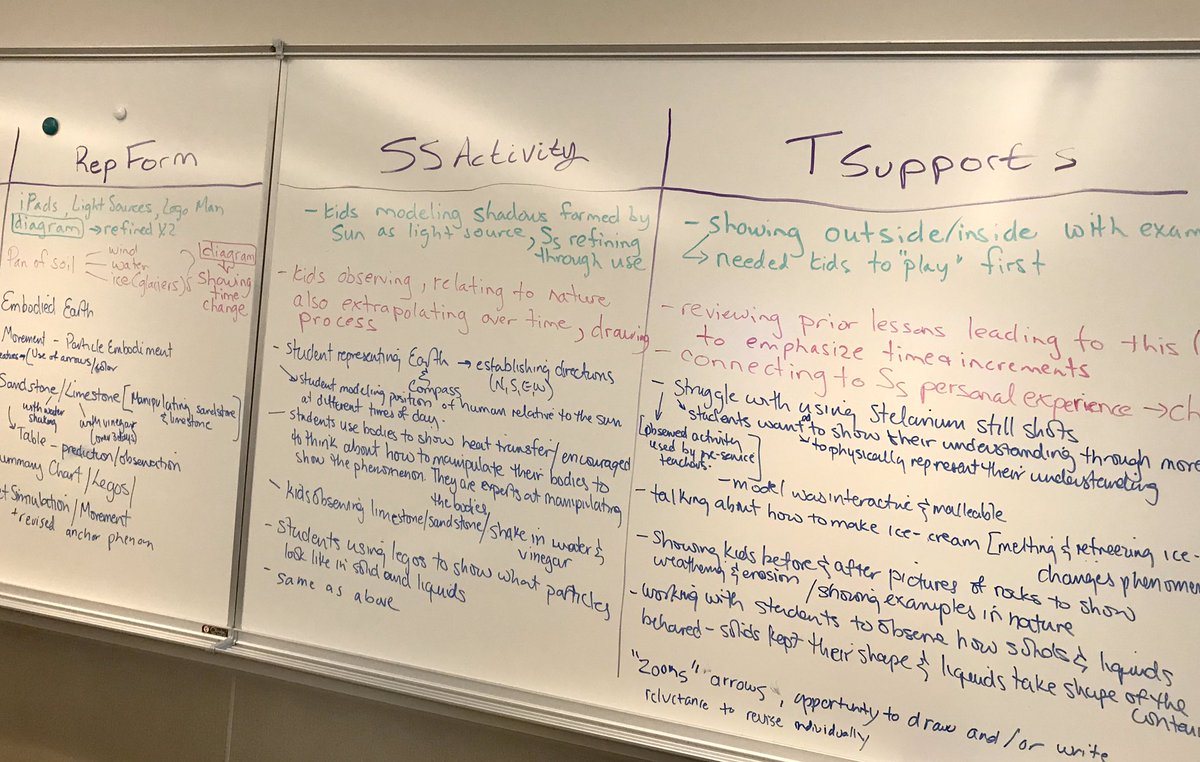 Rep Form
iPads, Light Sources, Lego Man
diagram → refined X2
Pan of soil
wind
water
ice (glaciers)
diagram
Showing
time
change
Embodied Earth
Movement - Particle Embodiment
(Use of arrows/color
Sandstone/Limestone [Manipulating sandstone
& limestone]
with water
shaking
with vinegar
(over 3 days)
Table - prediction/observation
ummary Chart/Legos/
et Simulation/Movement
+ revised anchor phenom
SS Activity
- Kids modeling shadows formed by
Sun as light source, Ss refining
through use
- Kids observing, relating to nature
also extrapolating over time, drawing
process
- Student representing Earth → establishing directions
& Compass (N,S,E,W)
student modeling position of human relative to the sun
at different times of day.
- students use bodies to show heat transfer/encouraged
to think about how to manipulate their bodies to
show the phenomenon. They are experts at manipulating
the bodies,
kids observing limestone/sandstone/shake in water &
vinegar
- Students using legos to show what particles
look like in solid and liquids
- same as above
T Supports
- Showing outside/inside with exam
→ needed kids to "play" first
- reviewing prior lessons leading to this (
to emphasize time & increments
- connecting to Ss personal experience → ch
- Struggle with using Stelarium still shots
students want to show their understanding through more
to physically represent their understanding
[observed activity
used by pre-service
teachers.]
- model was interactive & malleable
- talking about how to make ice-cream [melting & refreezing ice-
changes phenome
- Showing kids before & after pictures of rocks to show
weathering & erosion / showing examples in nature
- working with students to observe how solids & liquids
behaved - solids kept their shape & liquids take shape of the
contain
"Zooms" arrows, opportunity to draw and/or write
reluctance to revise individually